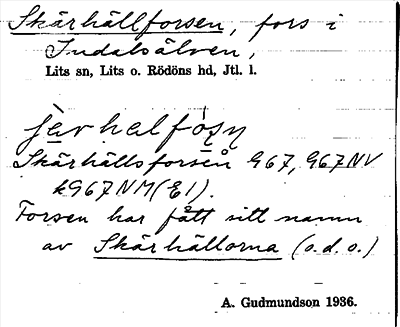 Skärhällforsen, fors i
Indalsälven,
Lits sn, Lits o. Rödöns hd, Jtl. l.
Skärhällsforsen G67, G67NV
k967NM(E1).
Forsen har fått sitt namn
av Skärhällorna (o.d.o.)
A. Gudmundson 1936.